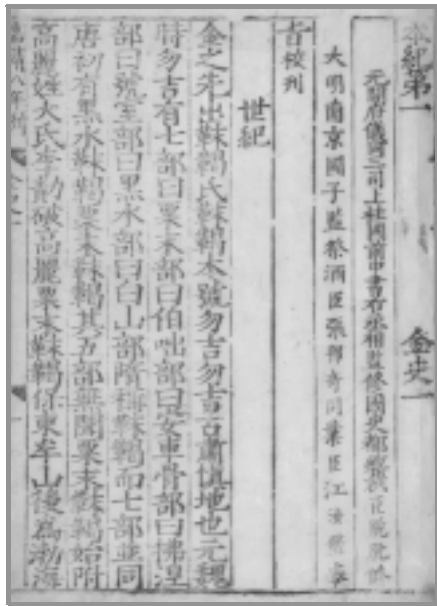 本紀第一 金史一
元開府儀同三司上柱國前中書右丞相監修國史都總裁臣脫脫修
大明南京國子監祭酒臣張邦奇司業臣江汝璧奉
旨校刊
世紀
金之先出靺鞨氏靺鞨本號勿吉勿吉古肅慎地也元魏
時勿吉有七部曰粟末部曰伯咄部曰安車骨部曰拂涅
部曰號室部曰黑水部曰白山部隋稱靺鞨而七部並同
唐初有黑水靺鞨粟末靺鞨其五部無聞粟末靺鞨始附
高麗姓大氏李勣破高麗粟末靺鞨保東牟山後為渤海
嘉靖八年